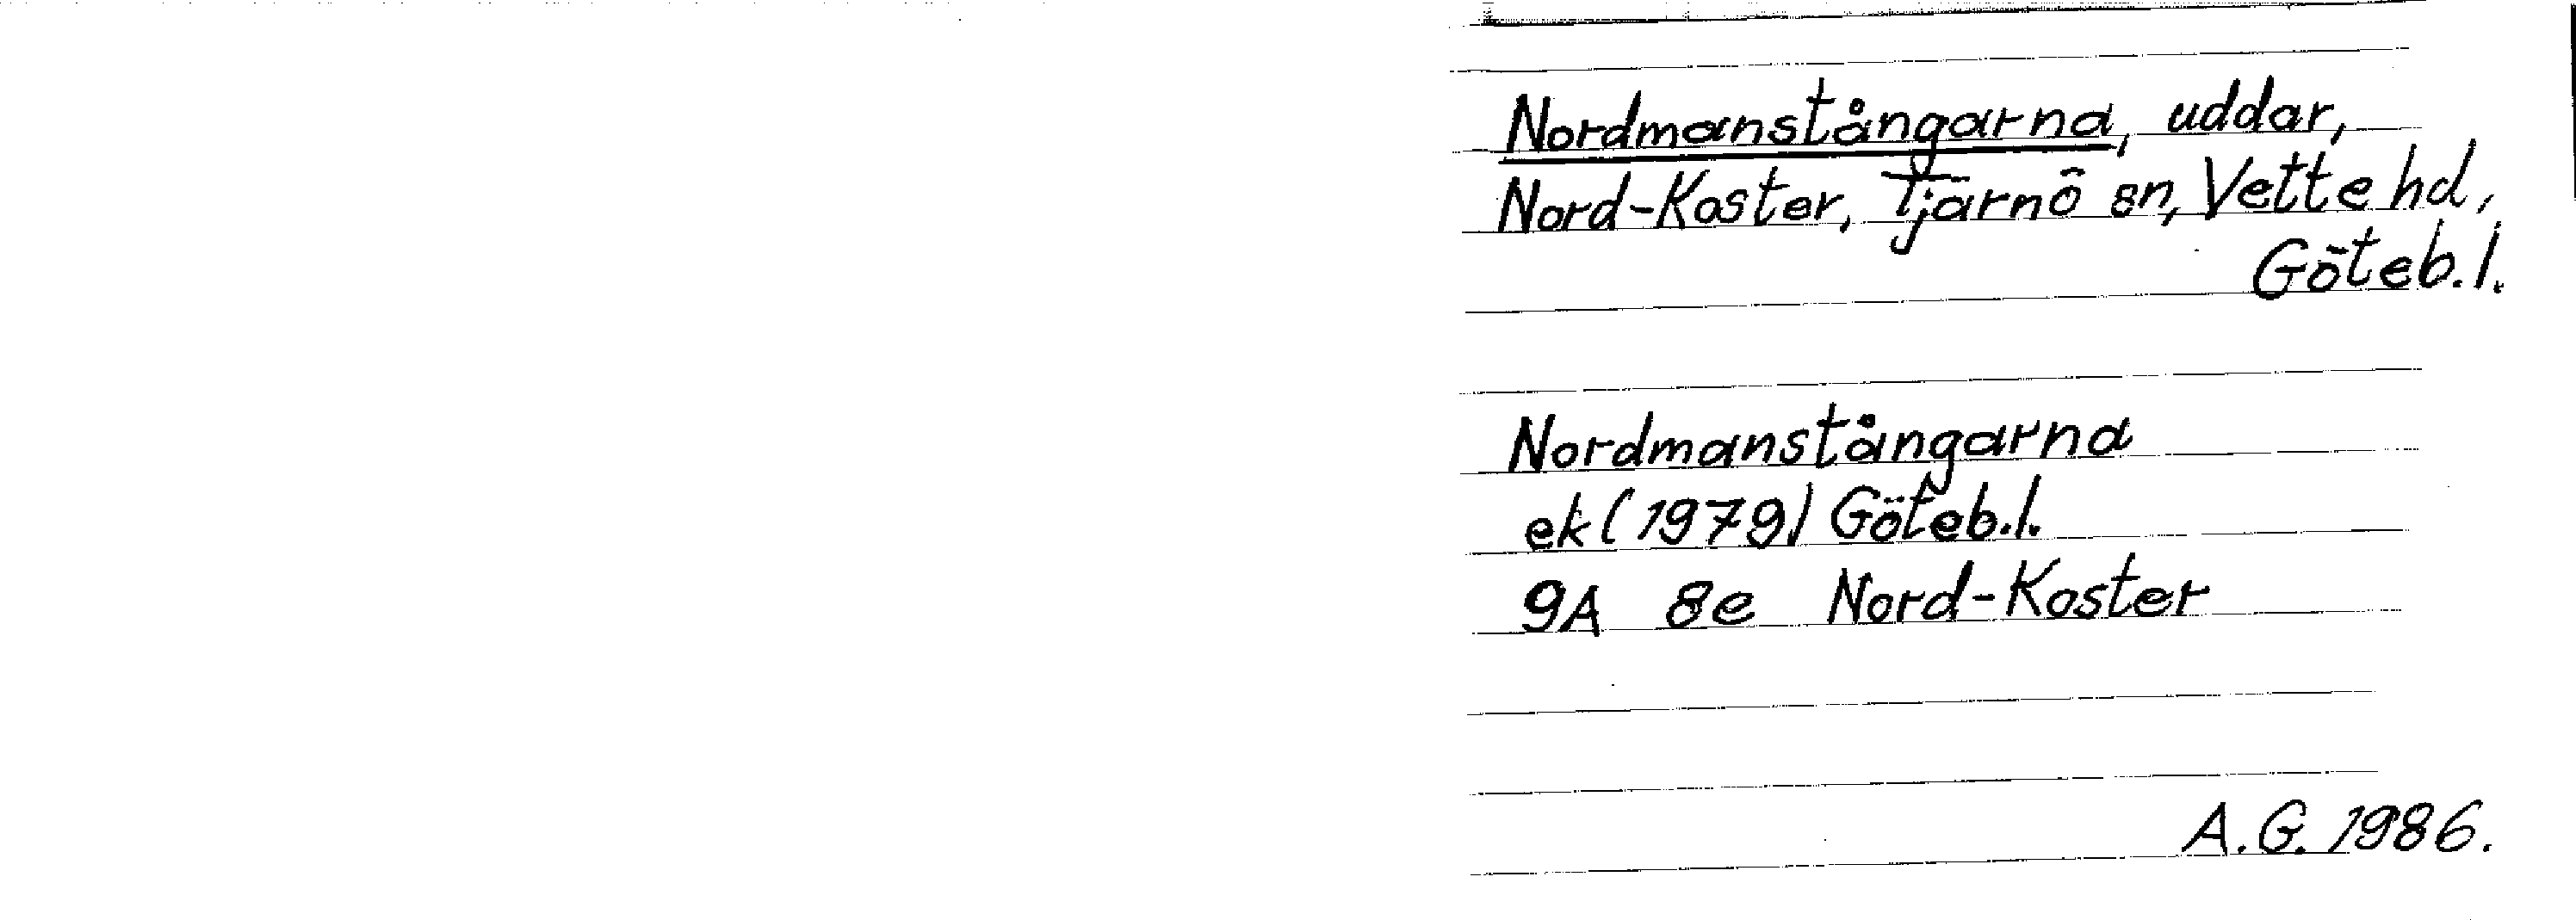 Nordmanstångarna, uddar,
Nord-Koster, Tjärnö sn, Vette hd,
Göteb.l.
Nordmanstångarna
ek (1979) Göteb.l.
9A 8e Nord-Koster
A.G. 1986.